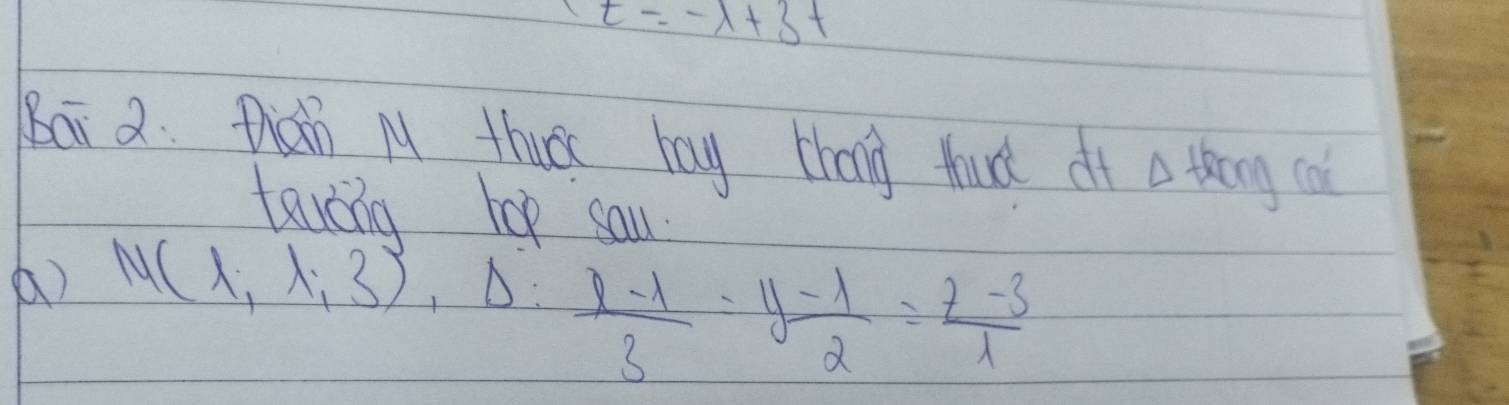 z = -1 + 3t
Bài 2: Điểm M thuộc hay không thuộc đt Δ trong các
trường hợp sau.
a) M(1; 1; 3), Δ: \frac{x-1}{3} = \frac{y-1}{2} = \frac{z-3}{1}